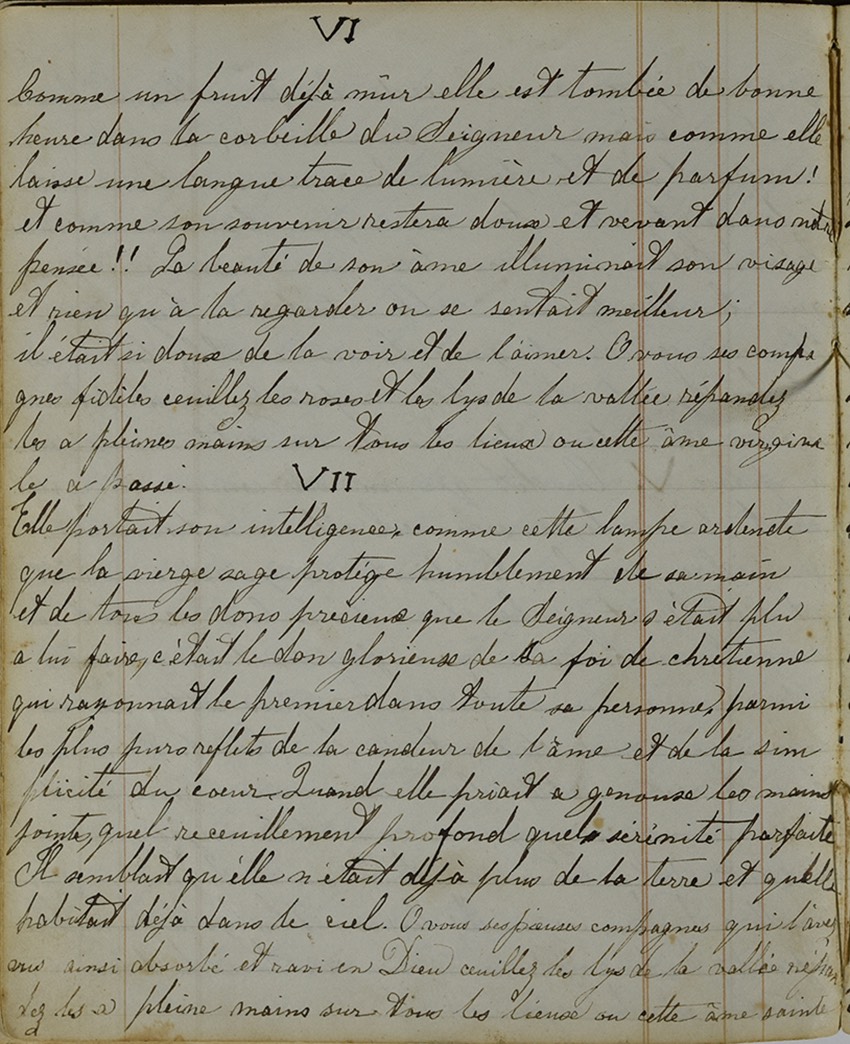 VI
Comme un fruit déjà mûr elle est tombée de bonne
heure dans la corbeille du Seigneur mais comme elle
laisse une langue trace de lumière et de parfum!
et comme son souvenir restera doux et vevant dans notre
pensée!! La beauté de son âme illuminait son visage
et rien qu'à la regarder on se sentait meilleur;
il était si doux de la voir et de l'aimer. O vous ses compa
gnes fidèles ceuillez les roses et les lys de la vallée répandez
les a pleines mains sur tous les lieux ou cette âme virgina
le a passé.
VII
Elle portait son intelligence, comme cette lampe ardente
que la vierge sage protège humblement de sa main
et de tous les dons précieux que le Seigneur s'était plu
a lui faire, c'était le don glorieux de sa foi de chrétienne
qui rayonnait le premier dans toute sa personne, parmi
les plus purs reflets de la candeur de l'âme et de la sim
plicité du coeur. Quand elle priait a genoux les mains
jointe, quel receuillement profond quelle sérénité parfaite
Il semblait qu'elle n'était déjà plus de la terre et qu'elle
habitait déjà dans le ciel. O vous ses pieuses compagnes qui l'avez
vu ainsi absorbé et ravi en Dieu ceuillez les lys de la vallée répan
dez les a pleine mains sur tous les lieux ou cette âme sainte